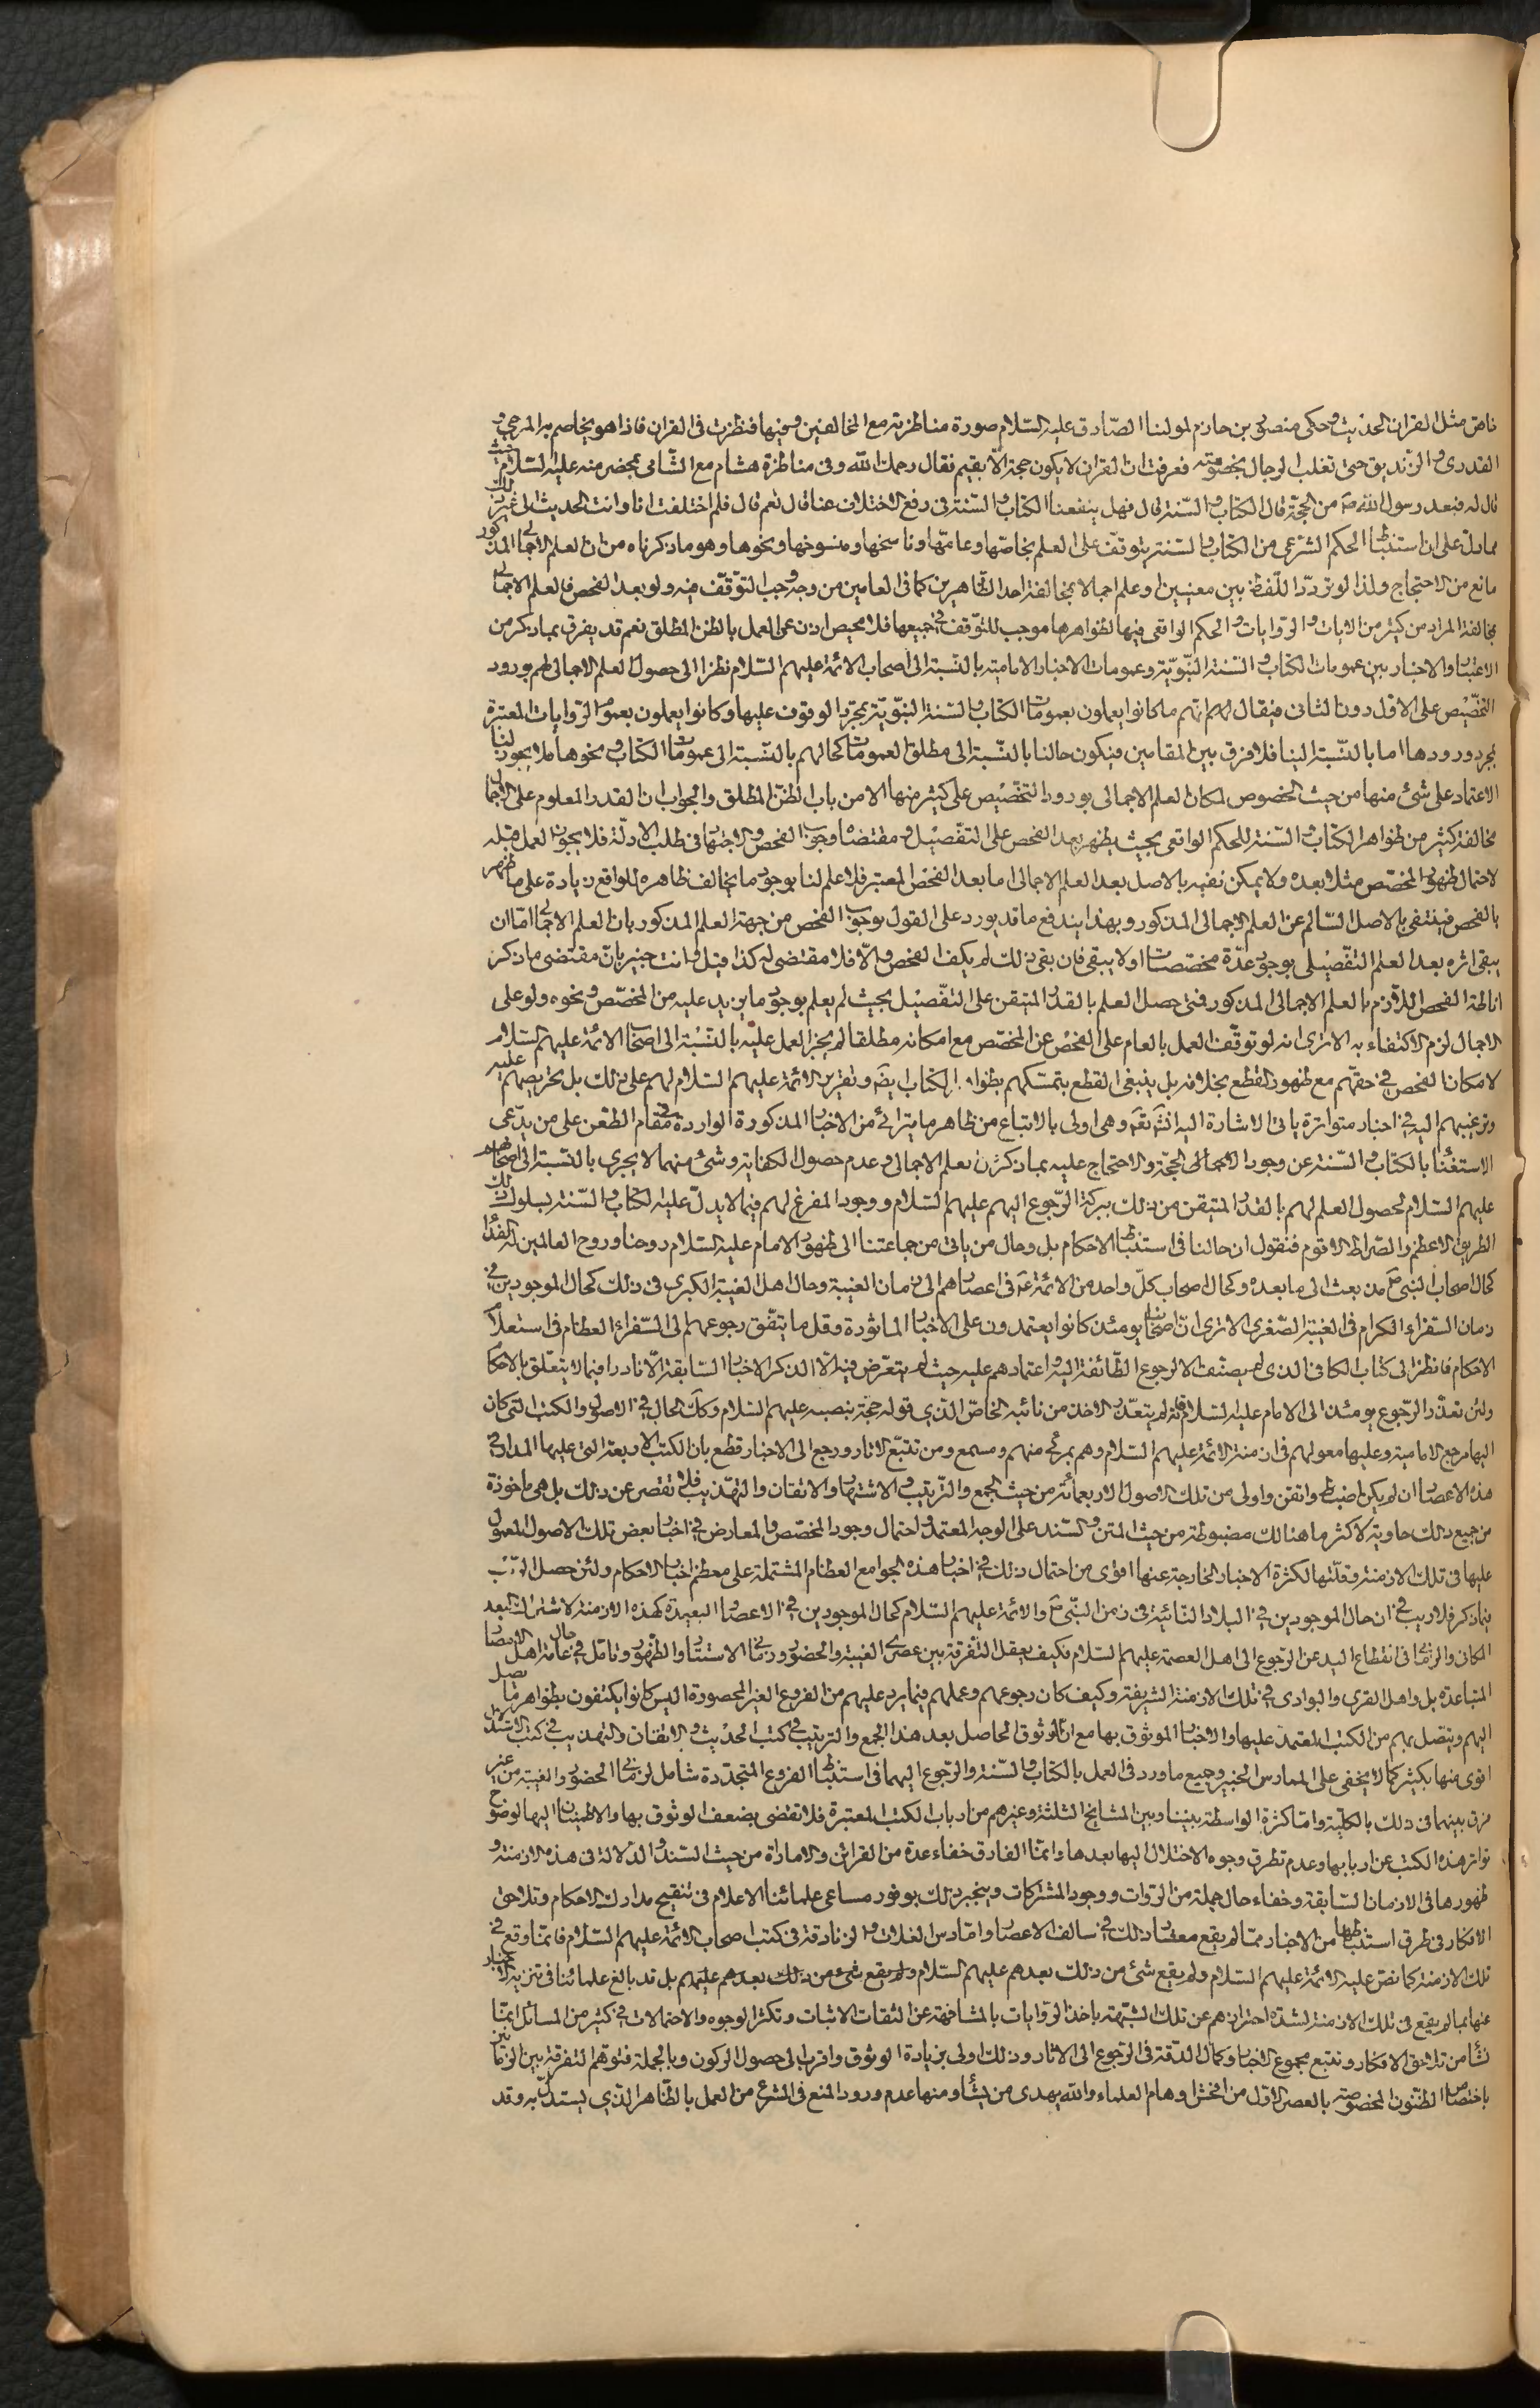 خاص مثل القران الحديث وحكى منصور بن حازم لمولينا الصّادق عليه السّلام صورة مناظرته مع المخالفين وفيها فنظرت فى القران فاذا هو يخاصم به المرجى و
القدرى و الزنديق حتى تغلب الرجال بخصومته فعرفت ان القران لا يكون حجة الّا بقيم فقال رحمك الله وفى مناظرة هشام مع الشّامى بمحضر منه عليه السّلام حيث
قال له فبعد رسول الله ص من الحجّة قال الكتاب و السّنة قال فهل ينفعنا الكتاب و السّنة فى رفع الاختلاف عنا قال نعم قال فلم اختلفت انا وانت الحديث الى غير ذلك
مما دلّ على ان استنباط الحكم الشرعى من الكتاب و السّنة يتوقف على العلم بخاصّها وعامّها وناسخها ومنسوخها ونحوها وهو ما ذكرناه من ان العلم الاجمالى المذكور
مانع من الاحتجاج ولذا لو تردّد اللّفظ بين معنيين او علم اجمالا بمخالفة احد الظّاهرين كما فى العامين من وجه وجب التوقّف فيه ولو بعد الفحص فالعلم الاجمالى
بمخالفة المراد من كثير من الايات و الروايات و الحكم الواقعى فيها لظواهرها موجب للتوقف فى جميعها فلا محيص اذن عن العمل بالظن المطلق نعم قد يفرق بما ذكر من
الاعتبار والاخبار بين عمومات الكتاب و السّنة النبّويّة وعمومات الاخبار الامامية بالنّسبة الى اصحاب الائمّة عليهم السّلام نظرا الى حصول العلم الاجمالى لهم بورود
التخصّيص على الاوّل دون الثانى فيقال لهم انهم ما كانوا يعملون بعمومات الكتاب و السّنة النبّويّة بمجرّد الوقوف عليها وكانوا يعملون بعموم الرّوايات المعتبرة
بمجرد ورودها اما بالنّسبة الينا فلا فرق بين المقامين فيكون حالنا بالنّسبة الى مطلق العمومات كحالهم بالنّسبة الى عمومات الكتاب و نحوها فلا يجوز لنا
الاعتماد على شئ منها من حيث الخصوص لمكان العلم الاجمالى بورود التخصّيص على كثير منها الا من باب الظنّ المطلق والجواب ان القدر المعلوم على الاجمال
مخالفة كثير من ظواهر الكتاب و السّنة للحكم الواقعى بحيث يظهر بعد الفحص على التفصّيل و مقتضاه وجوب الفحص و الاجتهاد فى طلب الادلّة فلا يجوز العمل قبله
لاحتمال ظهور المخصّص مثلا بعده ولا يمكن نفيه بالاصل بعد العلم الاجمالى اما بعد الفحص المعتبر فلا علم لنا بوجود ما يخالف ظاهره للواقع زيادة على ما ظهر
بالفحص فينتفى بالاصل السّالم عن العلم الاجمالى المذكور وبهذا يندفع ما قد يورد على القول بوجوب الفحص من جهة العلم المذكور بان العلم الاجمالى امّا ان
يبقى اثره بعد العلم التفصّيلى بوجود عدّة مخصصات او لا يبقى فان بقى ذلك لم يكف الفحص و الّا فلا مقتضى له كذا قيل و انت خبير بانّ مقتضى ما ذكر
اناطة الفحص اللّازم بالعلم الاجمالى المذكور فمتى حصل العلم بالقدر المتيقن على التفصّيل بحيث لم يعلم بوجود ما يزيد عليه من المخصّص و نحوه ولو على
الاجمال لزم الاكتفاء به الا ترى انه لو توقّف العمل بالعام على الفحص عن المخصّص مع امكانه مطلقا لم يجز العمل عليه بالنّسبة الى اصحاب الائمّة عليهم السّلام
لامكان الفحص فى حقّهم مع ظهور القطع بخلافه بل ينبغى القطع بتمسّكهم بظواهر الكتاب ايضا وتقرير الائمّة عليهم السّلام لهم على ذلك بل تحريصهم عليه
وترغيبهم اليه فى اخبار متواترة ياتى الاشارة اليها انش تع وهى اولى بالاتباع من ظاهر ما يترائى من الاخبار المذكورة الواردة فى مقام الطّعن على من يدّعى
الاستغناء بالكتاب و السّنة عن وجود الامام الحجّة والاحتجاج عليه بما ذكر من العلم الاجمالى وعدم حصول الكفاية وشئ منهما لا يجرى بالنّسبة الى اصحابهم
عليهم السّلام لحصول العلم لهم بالقدر المتيقن من ذلك ببركة الرّجوع اليهم عليهم السّلام ووجود المفرغ لهم فيما لا يدلّ عليه الكتاب و السّنة بسلوك تلك
الطريق الاعظم والصّراط الاقوم فنقول ان حالنا فى استنباط الاحكام بل وحال من ياتى من جماعتنا الى ظهور الامام عليه السّلام روحنا وروح العالمين له الفداء
كحال اصحاب النبى ص من بعثه الى ما بعده وكحال اصحاب كلّ واحد من الائمّة ع فى اعصارهم الى زمان الغيبة وحال اهل الغيبة الكبرى فى ذلك كحال الموجودين فى
زمان السّفراء الكرام فى الغيبة الصّغرى الا ترى انّ اصحابنا يومئذ كانوا يعتمدون على الاخبار الماثورة وقل ما يتّفق رجوعهم الى السّفراء العظام فى استعلام
الاحكام فانظر الى كتاب الكافى الذى لم يصنّف الا لرجوع الطّائفة اليه و اعتمادهم عليه حيث لم يتعرّض فيه الّا لذكر الاخبار السّابقة الّا نادرا فيما لا يتعلّق بالاحكام
ولئن تعذّر الرّجوع يومئذ الى الامام عليه السّلام فانّه لم يتعذّر الاخذ من نائبه الخاصّ الّذى قوله حجة بنصبه عليهم السّلام وكك الحال فى الاصول والكتب التى كان
اليها مرجع الامامية وعليها معولهم فى ازمنة الائمّة عليهم السّلام وهم بمرئى منهم ومسمع ومن تتبّع الاثار ورجع الى الاخبار قطع بان الكتب الاربعة التى عليها المدار فى
هذه الاعصار ان لم يكن اضبط واتقن واولى من تلك الاصول الاربعمائة من حيث الجمع والترتيب و الاشتهار والاتقان والتهذيب فلا تقصر عن ذلك بل هى ماخوذة
من جميع ذلك حاوية لاكثر ما هنالك مضبوطة من حيث المتن و السّند على الوجه المعتمد و احتمال وجود المخصّص و المعارض فى اخبار بعض تلك الاصول المعمول
عليها فى تلك الازمنة وقلّتها لكثرة الاخبار الخارجة عنها اقوى من احتمال ذلك فى اخبار هذه الجوامع العظام المشتملة على معظم اخبار الاحكام ولئن حصل الرّيب
فيما ذكر فلا ريب فى ان حال الموجودين فى البلاد النّائية فى زمن النّبى ص والائمّة عليهم السّلام كحال الموجودين فى الاعصار البعيدة كهذه الازمنة لاشتراك البعد
المكانى والزمانى فى انقطاع اليد عن الرّجوع الى اهل العصمة عليهم السّلام فكيف يعقل التّفرقة بين عصرى الغيبة والحضور وزمانى الاستتار والظّهور وتامّل فى حال عامة اهل الامصار
المتباعدة بل واهل القرى والبوادى فى تلك الازمنة الشريفة وكيف كان رجوعهم وعملهم فيما يرد عليهم من الفروع الغير المحصورة اليس كانوا يكتفون بظواهر ما يصل
اليهم ويتصل بهم من الكتب المعتمد عليها والاخبار الموثوق بها مع انّ الوثوق الحاصل بعد هذا الجمع والترتيب فى كتب الحديث و الاتقان والتهذيب فى كتب الاستدلال
اقوى منها بكثير كما لا يخفى على الممارس الخبير وجميع ما ورد فى العمل بالكتاب و السّنة والرّجوع اليهما فى استنباط الفروع المتجدّدة شامل لزمانى الحضور والغيبة من غير
فرق بينهما فى ذلك بالكليّة وامّا كثرة الواسطة بيننا وبين المشايخ الثلثة وغيرهم من ارباب الكتب المعتبرة فلا تقضى بضعف الوثوق بها والاطمينان اليها لوضوح
تواتر هذه الكتب عن اربابها وعدم تطرق وجوه الاختلال اليها بعدها وانّما الفارق خفاء عدة من القرائن والامارات من حيث السّند و الدّلالة فى هذه الازمنة و
ظهورها فى الازمان السّابقة وخفاء حال جملة من الرّوات ووجود المشتركات وينجبر ذلك بوفور مساعى علمائنا الاعلام فى تنقيح مدارك الاحكام وتلاحق
الافكار فى طرق استنباطها من الاخبار ممّا لم يقع معشار ذلك فى سالف الاعصار وامّا دس الغلات و الزنادقة فى كتب اصحاب الائمّة عليهم السّلام فانّما وقع فى
تلك الازمنة كما نصّ عليه الائمّة عليهم السّلام ولم يقع شئ من ذلك بعدهم عليهم السّلام ولم يقع شئ من ذلك بعدهم عليهم بل قد بالغ علمائنا فى تنزيه الاخبار
عنها بما لم يقع فى تلك الازمنة لشدّة احترازهم عن تلك الشبّهة باخذ الروايات بالمشافهة عن الثقات الاثبات وتكثر الوجوه والاحتمالات فى كثير من المسائل انّما
نشأ من تلاحق الافكار و تتبع مجموع الاخبار وكمال الدّقة فى الرّجوع الى الاثار وذلك اولى بزيادة الوثوق واقرب الى حصول الركون وبالجملة فتوهّم التفرقة بين الزمانين
باختصاص الظنّون المخصوصة بالعصر الاوّل من افحش اوهام العلماء والله يهدى من يشأ ومنها عدم ورود المنع فى الشرع من العمل بالظّاهر الّذى يستدلّ به وقد